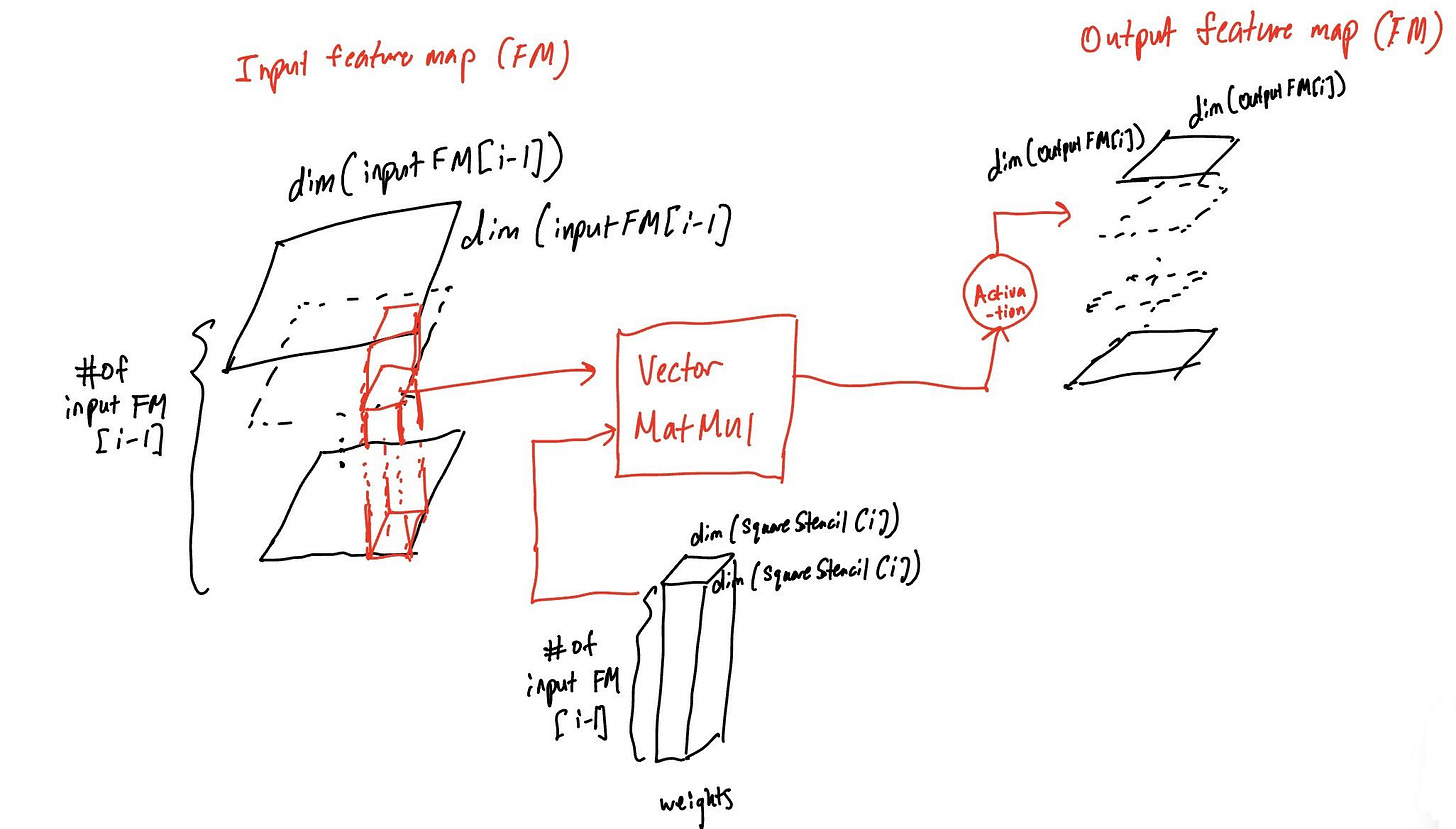 Input feature map (FM)
Output feature map (FM)
dim (output FM[i])
dim (output FM[i])
dim (input FM [i-1])
dim (input FM [i-1]
# of
input FM
[i-1]
Vector
MatMul
Activa
-tion
dim (square Stencil [i])
dim (square Stencil [i])
# of
input FM
[i-1]
weights